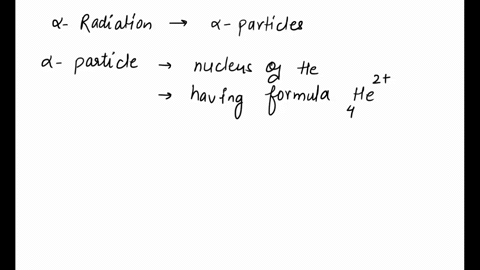 α- Radiation → α- particles
α- particle → nucleus of He
→ having formula ₄He²⁺